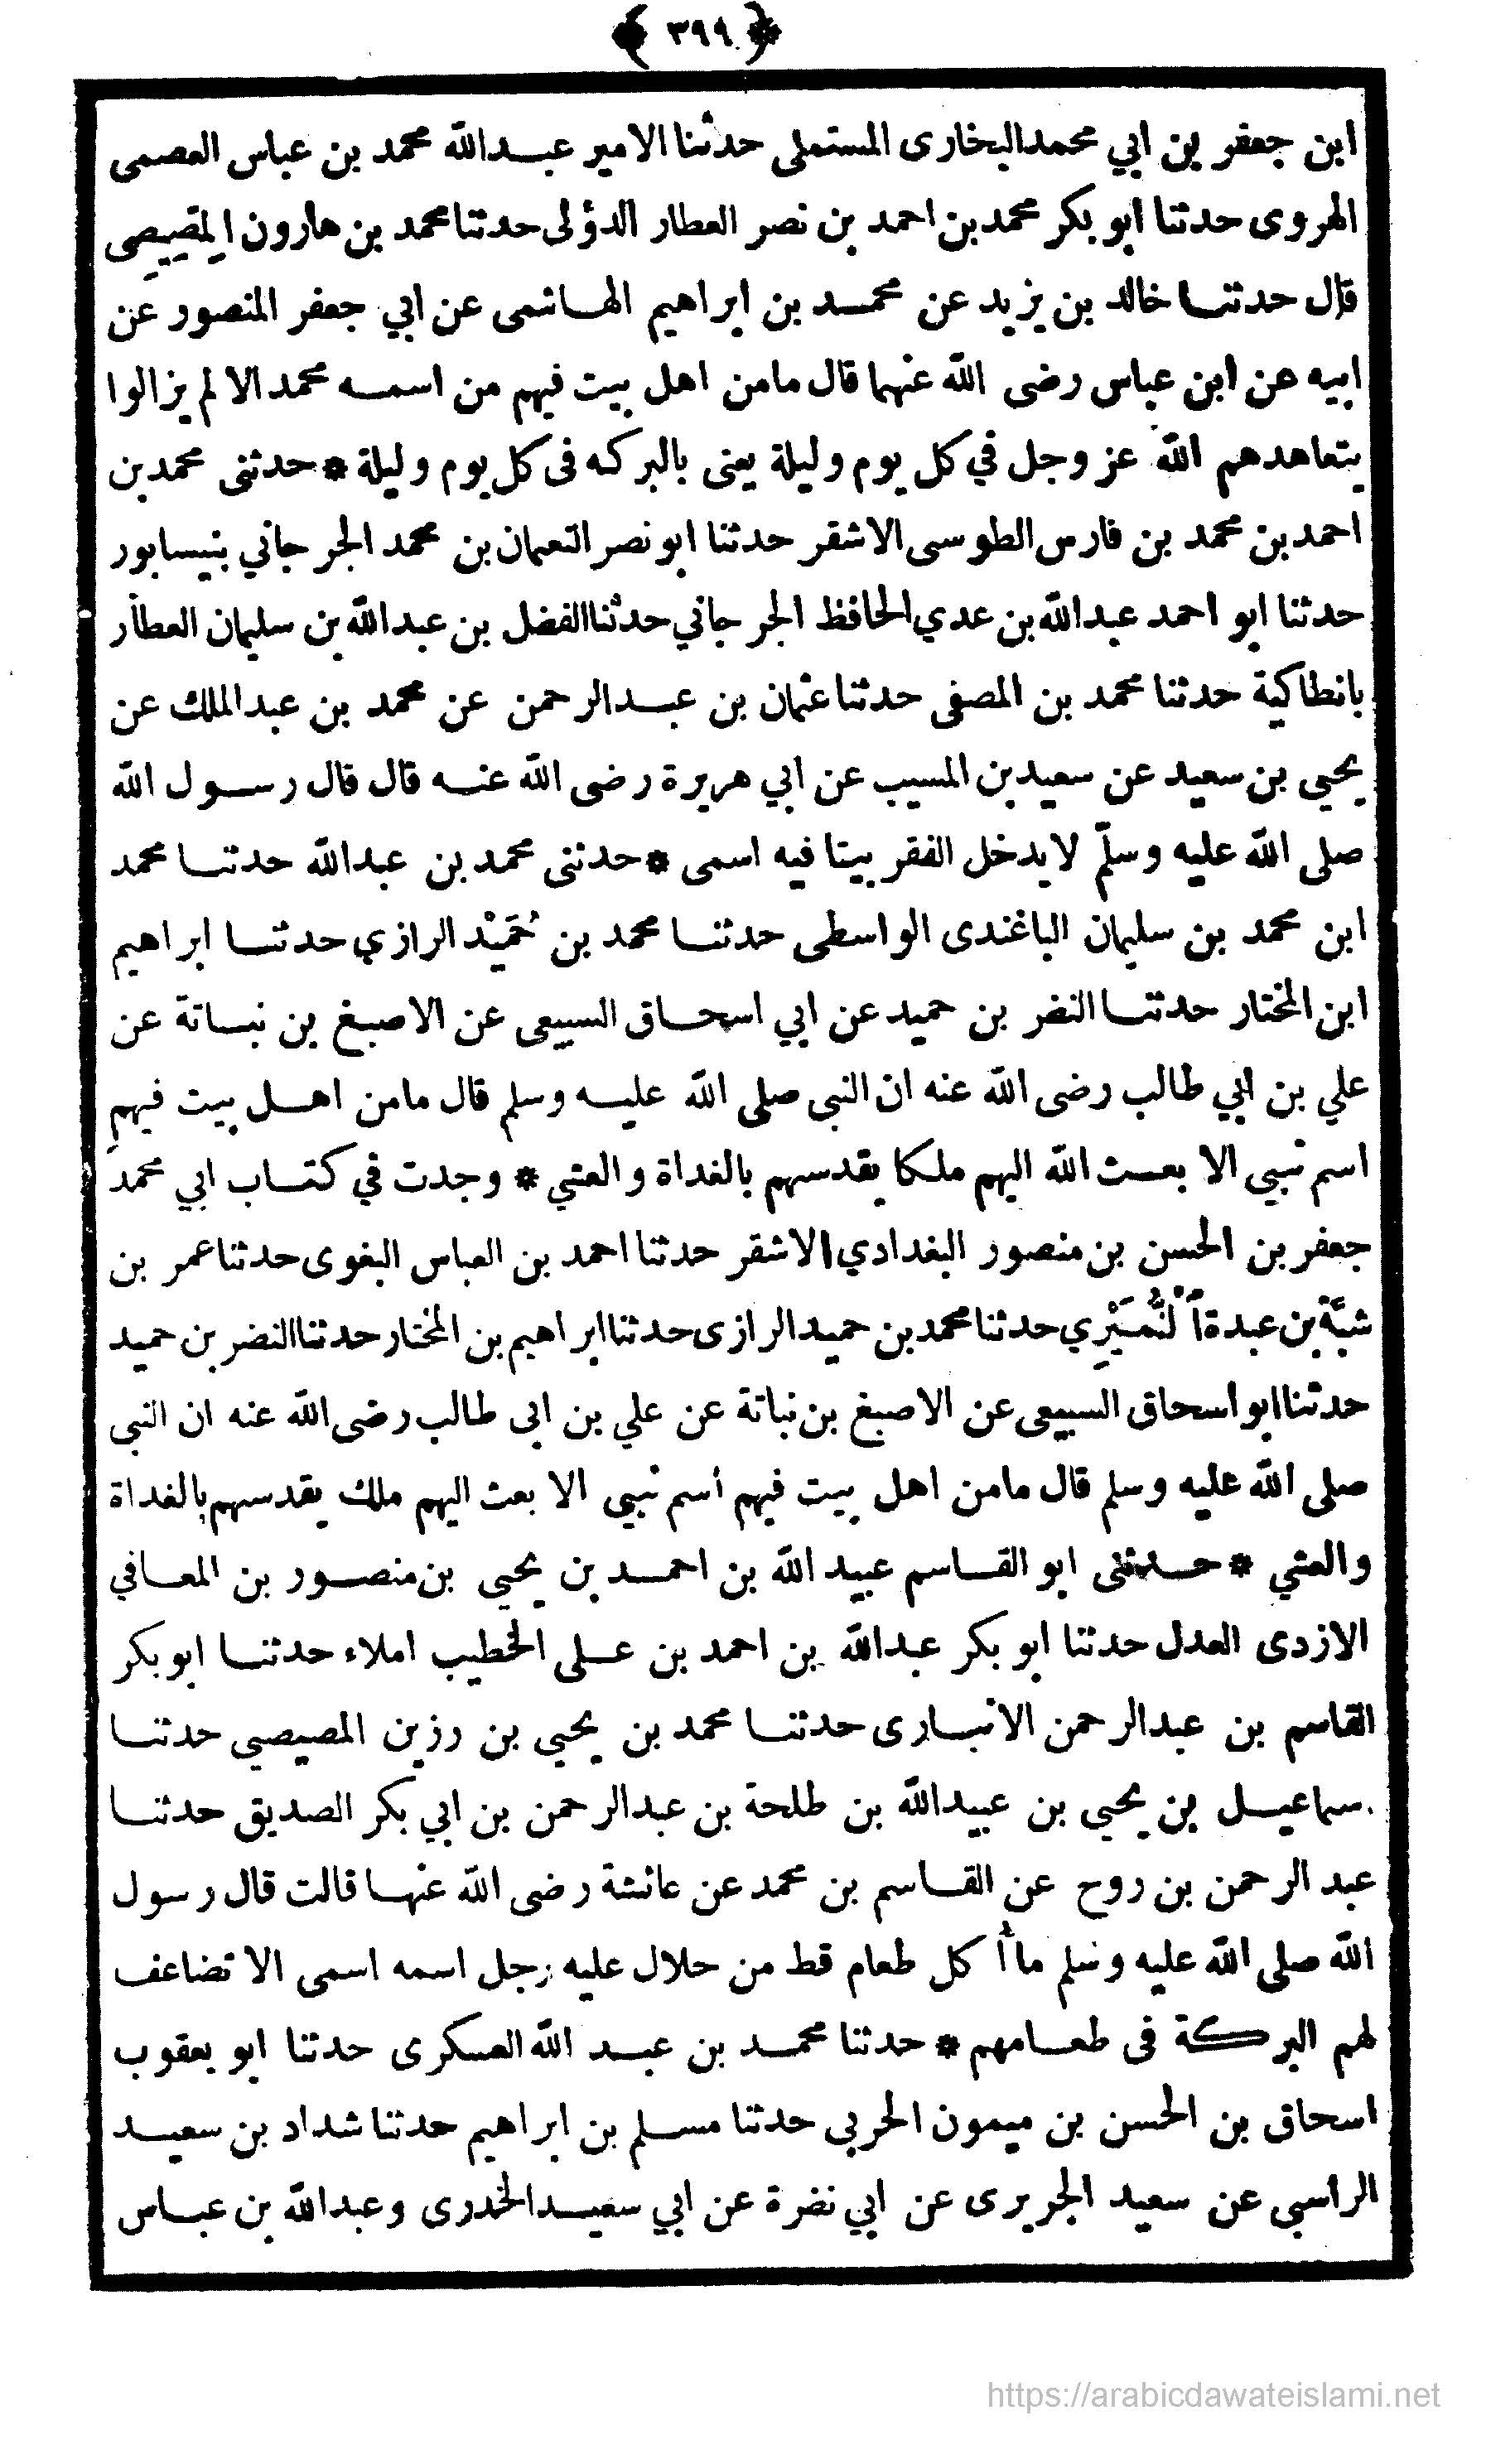 ﴿ ٣٩٩ ﴾
ابن جعفر بن ابي محمد البخارى المستملى حدثنا الامير عبدالله محمد بن عباس العصمى
الهروى حدثنا ابو بكر محمد بن احمد بن نصر العطار الدؤلى حدثنا محمد بن هارون المصيصى
قال حدثنا خالد بن يزيد عن محمد بن ابراهيم الهاشمى عن ابي جعفر المنصور عن
ابيه عن ابن عباس رضى الله عنهما قال مامن اهل بيت فيهم من اسمه محمد الا لم يزالوا
يتعاهدهم الله عز وجل في كل يوم وليلة يعنى بالبركه فى كل يوم وليلة * حدثنى محمد بن
احمد بن محمد بن فارس الطوسى الاشقر حدثنا ابو نصر النعمان بن محمد الجرجاني بنيسابور
حدثنا ابو احمد عبدالله بن عدي الحافظ الجرجاني حدثنا الفضل بن عبدالله بن سليمان العطار
بانطاكية حدثنا محمد بن المصفى حدثنا عثمان بن عبدالرحمن عن محمد بن عبدالملك عن
يحيى بن سعيد عن سعيد بن المسيب عن ابي هريرة رضى الله عنه قال قال رسول الله
صلى الله عليه وسلّم لا يدخل الفقر بيتا فيه اسمى * حدثنى محمد بن عبدالله حدثنا محمد
ابن محمد بن سليمان الباغندى الواسطى حدثنا محمد بن حُمَيْد الرازي حدثنا ابراهيم
ابن المختار حدثنا النضر بن حميد عن ابي اسحاق السبيعى عن الاصبغ بن نباتة عن
علي بن ابي طالب رضى الله عنه ان النبى صلى الله عليه وسلم قال مامن اهل بيت فيهم
اسم نبيى الا بعث الله اليهم ملكا يقدسهم بالغداة والعشي * وجدت في كتاب ابي محمد
جعفر بن الحسن بن منصور البغدادي الاشقر حدثنا احمد بن العباس البغوى حدثنا عمر بن
شبَّة بن عبدة النُّمَيْرِي حدثنا محمد بن حميد الرازى حدثنا ابراهيم بن المختار حدثنا النضر بن حميد
حدثنا ابو اسحاق السبيعى عن الاصبغ بن نباتة عن علي بن ابى طالب رضى الله عنه ان النبى
صلى الله عليه وسلم قال مامن اهل بيت فيهم أسم نبيى الا بعث اليهم ملك يقدسهم بالغداة
والعشي * حدثنى ابو القاسم عبيد الله بن احمد بن يحيى بن منصور بن المعافي
الازدى العدل حدثنا ابو بكر عبدالله بن احمد بن على الخطيب املاء حدثنا ابو بكر
القاسم بن عبدالرحمن الانبارى حدثنا محمد بن يحيى بن رزين المصيصي حدثنا
سماعيل بن يحيى بن عبيدالله بن طلحة بن عبدالرحمن بن ابي بكر الصديق حدثنا
عبد الرحمن بن روح عن القاسم بن محمد عن عائشة رضى الله عنها قالت قال رسول
الله صلى الله عليه وسلم ما أكل طعام قط من حلال عليه رجل اسمه اسمى الا تضاعف
لهم البركة فى طعامهم * حدثنا محمد بن عبد الله العسكرى حدثنا ابو يعقوب
اسحاق بن الحسن بن ميمون الحربى حدثنا مسلم بن ابراهيم حدثنا شداد بن سعيد
الراسبى عن سعيد الجريرى عن ابي نضرة عن ابي سعيد الخدرى وعبدالله بن عباس
https://arabicdawateislami.net